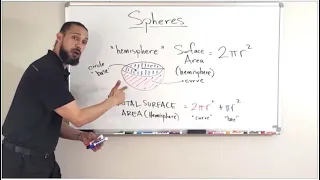 Spheres
"hemisphere"
Surface Area (hemisphere) = 2πr²
circle "base"
curve
TOTAL SURFACE AREA (Hemisphere) = 2πr² + πr²
"curve" "base"